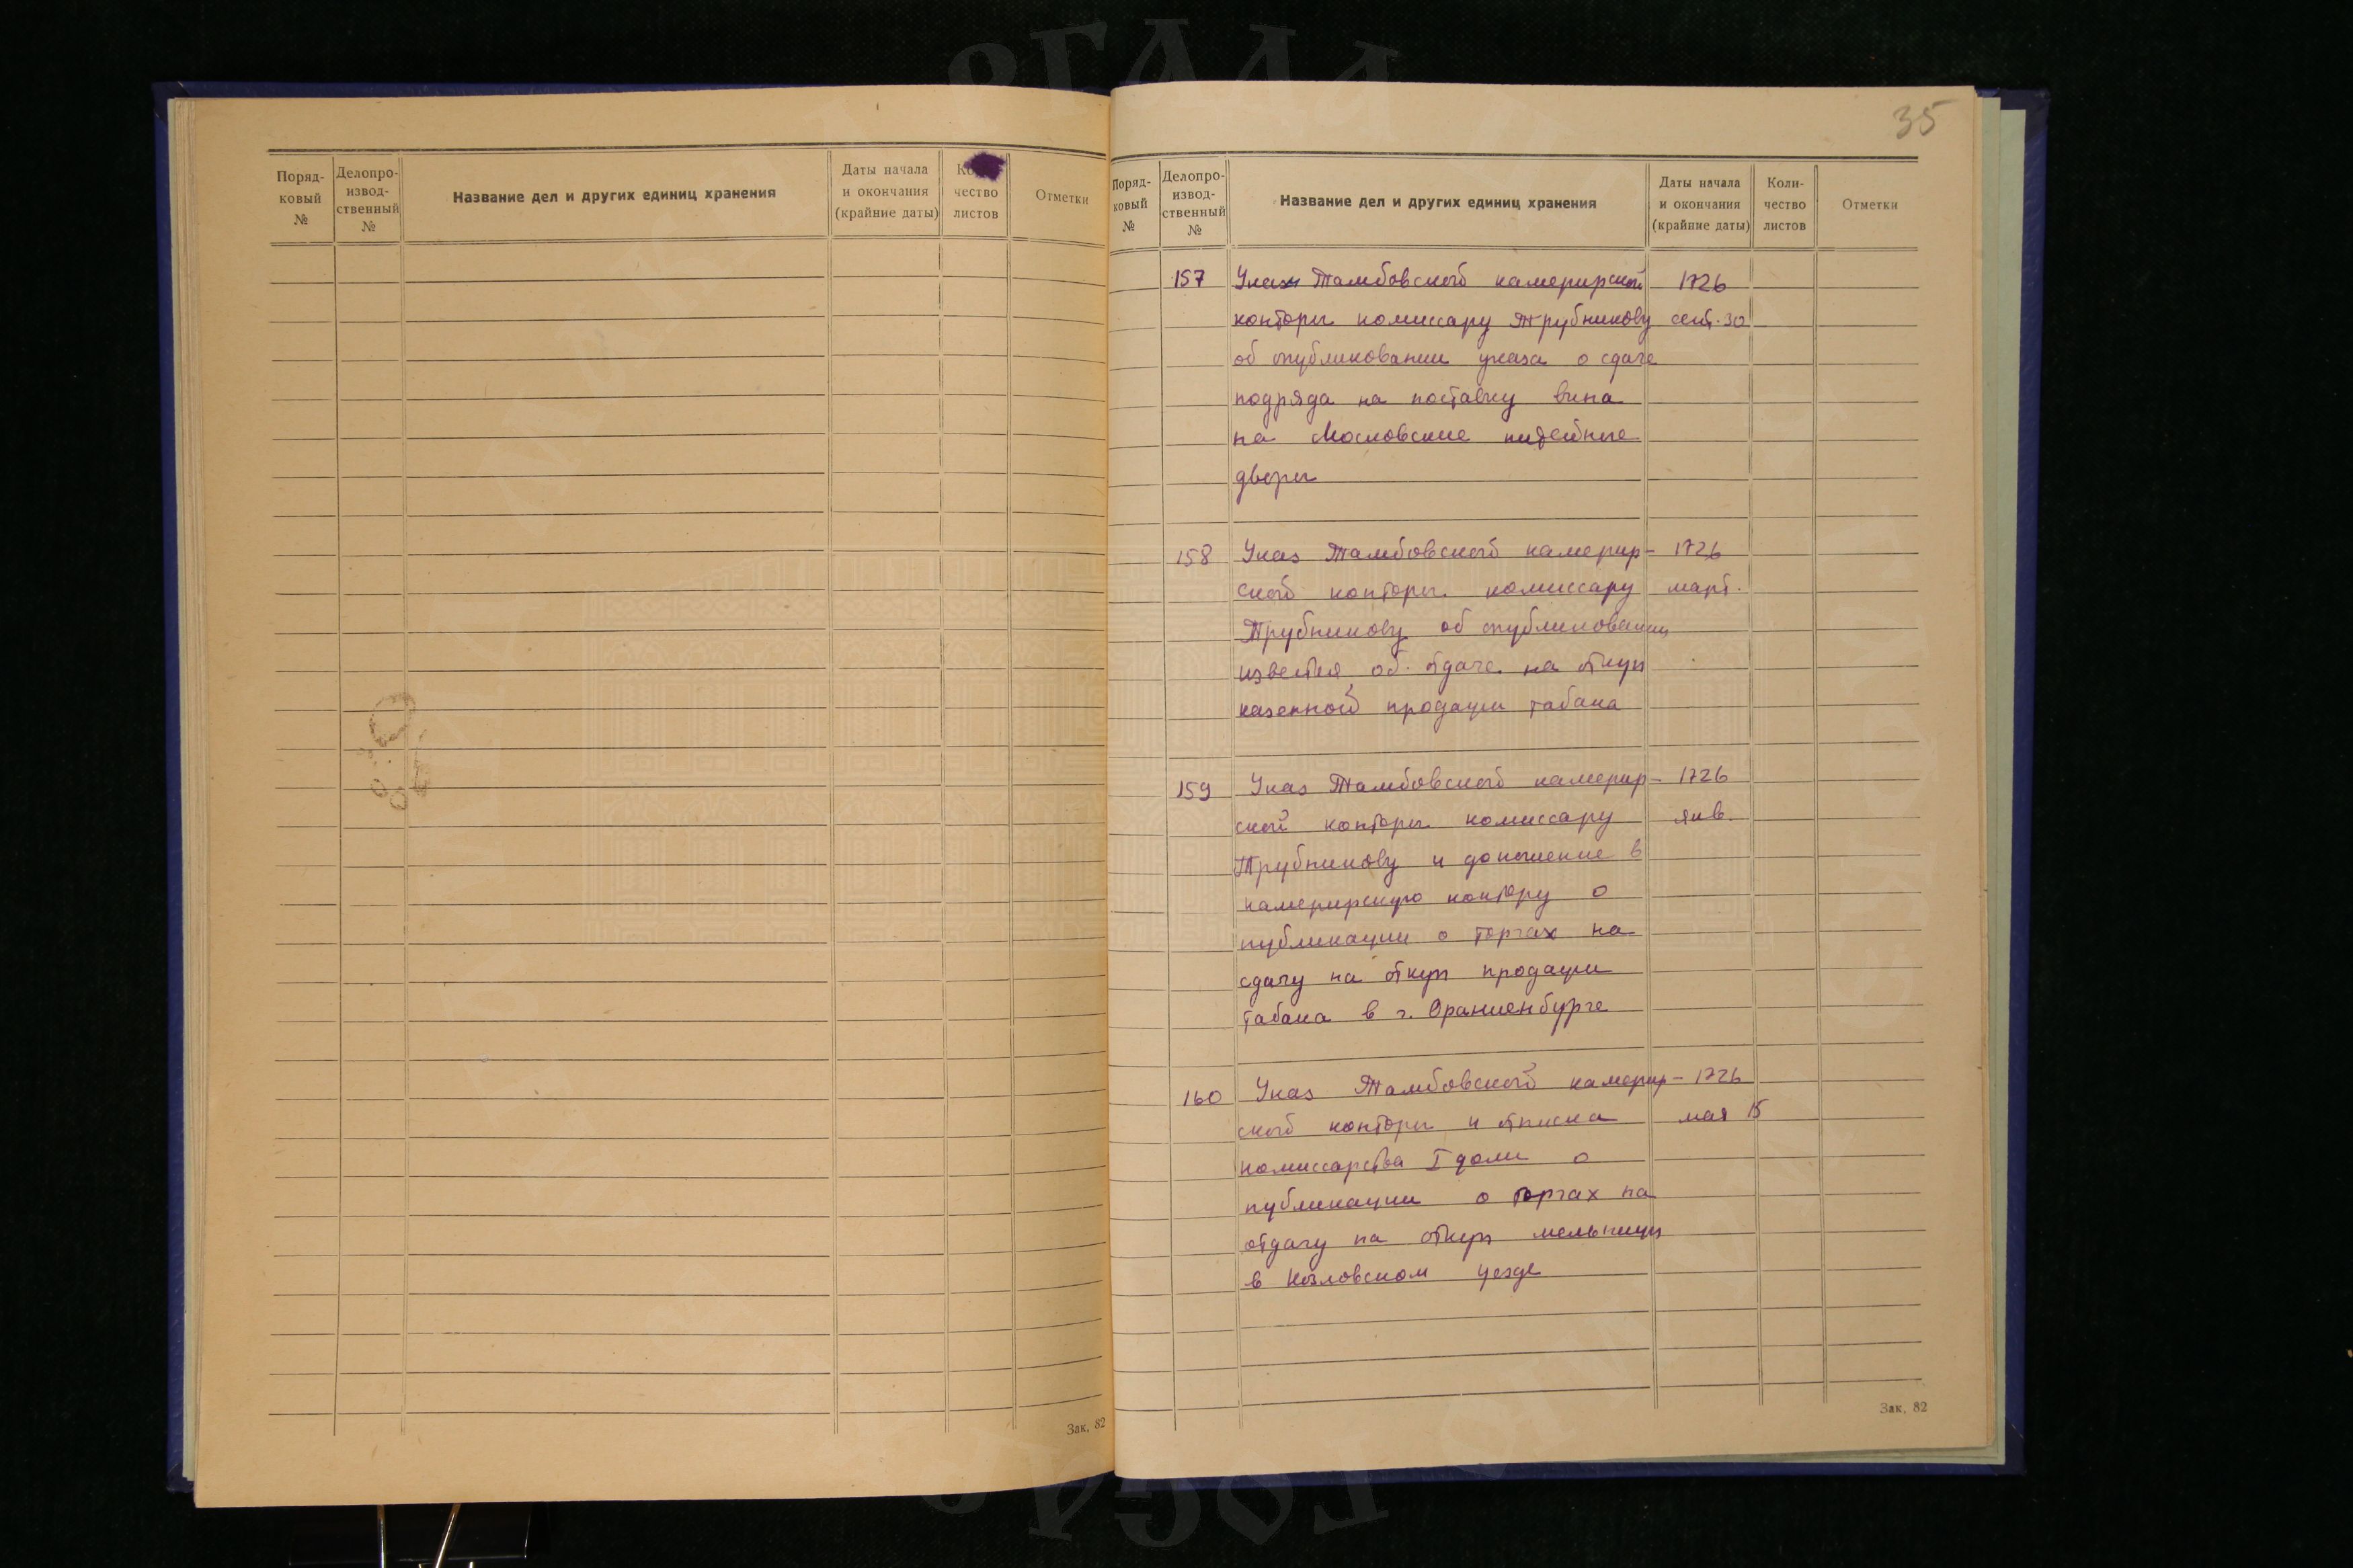 Поряд-
ковый
№
Делопро-
извод-
ственный
№
Название дел и других единиц хранения
Даты начала
и окончания
(крайние даты)
чество
листов
Отметки
Зак. 82
35
Поряд-
ковый
№
Делопро-
извод-
ственный
№
Название дел и других единиц хранения
Даты начала
и окончания
(крайние даты)
Коли-
чество
листов
Отметки
157 Указ Тамбовской камерирской 1726
конторы комиссару Трубникову сент. 30
об опубликовании указа о сдаче
подряда на поставку вина
на Московские питейные
дворы
158 Указ Тамбовской камерир- 1726
ской конторы комиссару март.
Трубникову об опубликовании
известия об отдаче на откуп
казенной продажи табака
159 Указ Тамбовской камерир- 1726
ской конторы комиссару янв.
Трубникову и доношение в
камерирскую контору о
публикации о торгах на
сдачу на откуп продажи
табака в г. Ораниенбурге
160 Указ Тамбовской камерир- 1726
ской конторы и отписка мая 15
комиссарства I доли о
публикации о торгах на
отдачу на откуп мельницы
в Козловском уезде
Зак. 82